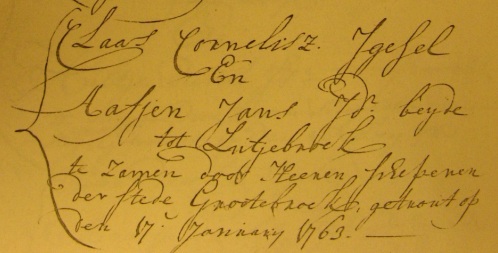 Claas Cornelisz. Jgesel
En
Aafjen Jans Jdr. beyde
tot Lutjebroek
te zamen door Heeren Schepenen
der stede Grootebroek, getrout op
den 17 January 1763.